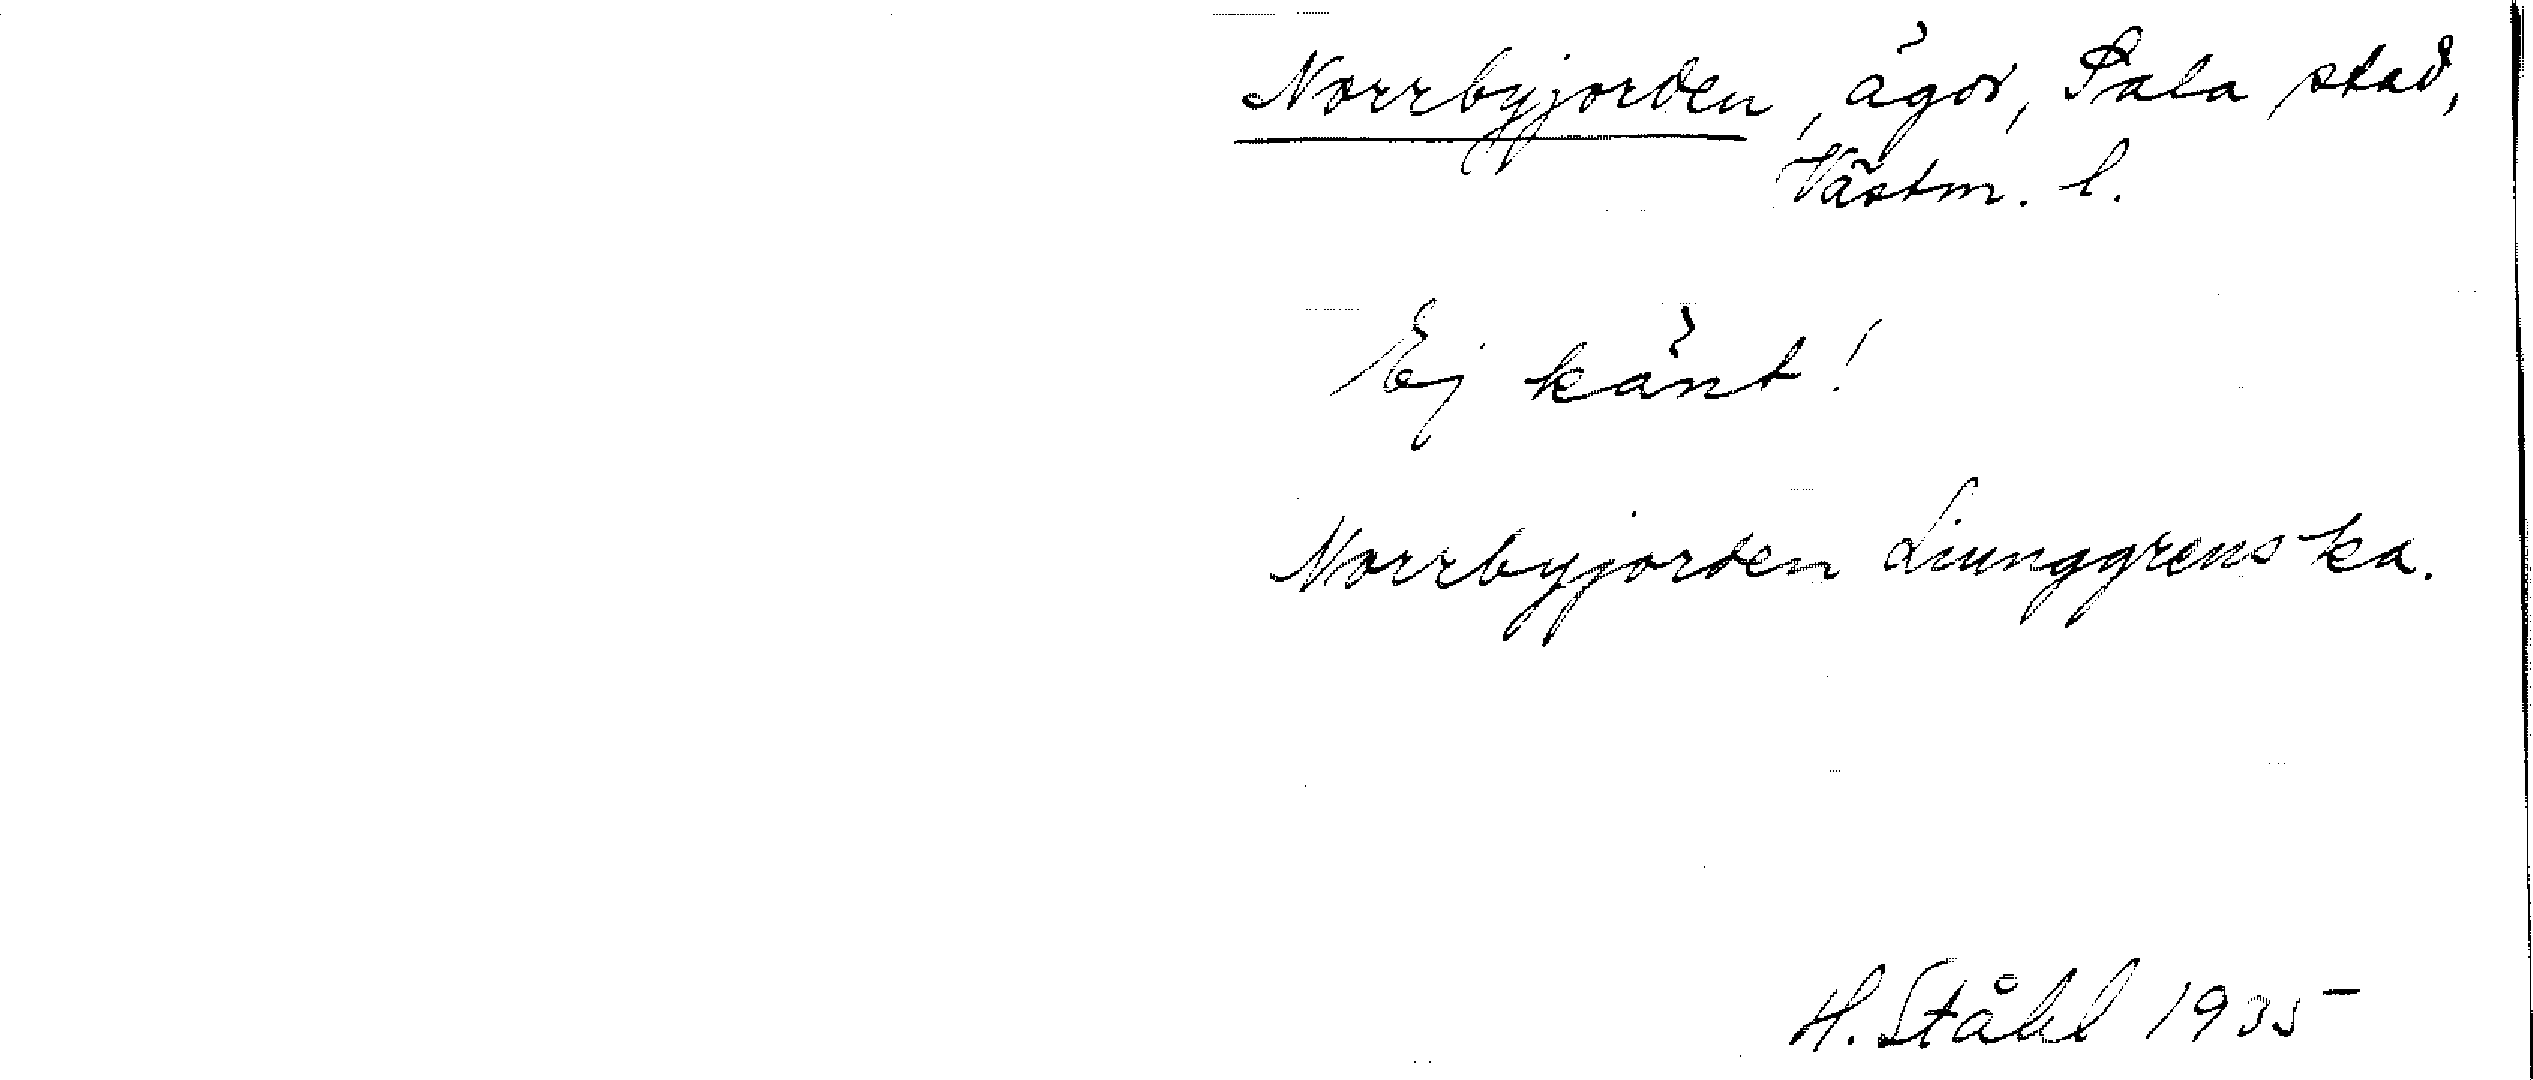 Norrbyjorden, ägor, Sala stad,
Västm. l.
Ej känt!
Norrbyjorden Liunggrenska.
H. Ståhl 1935